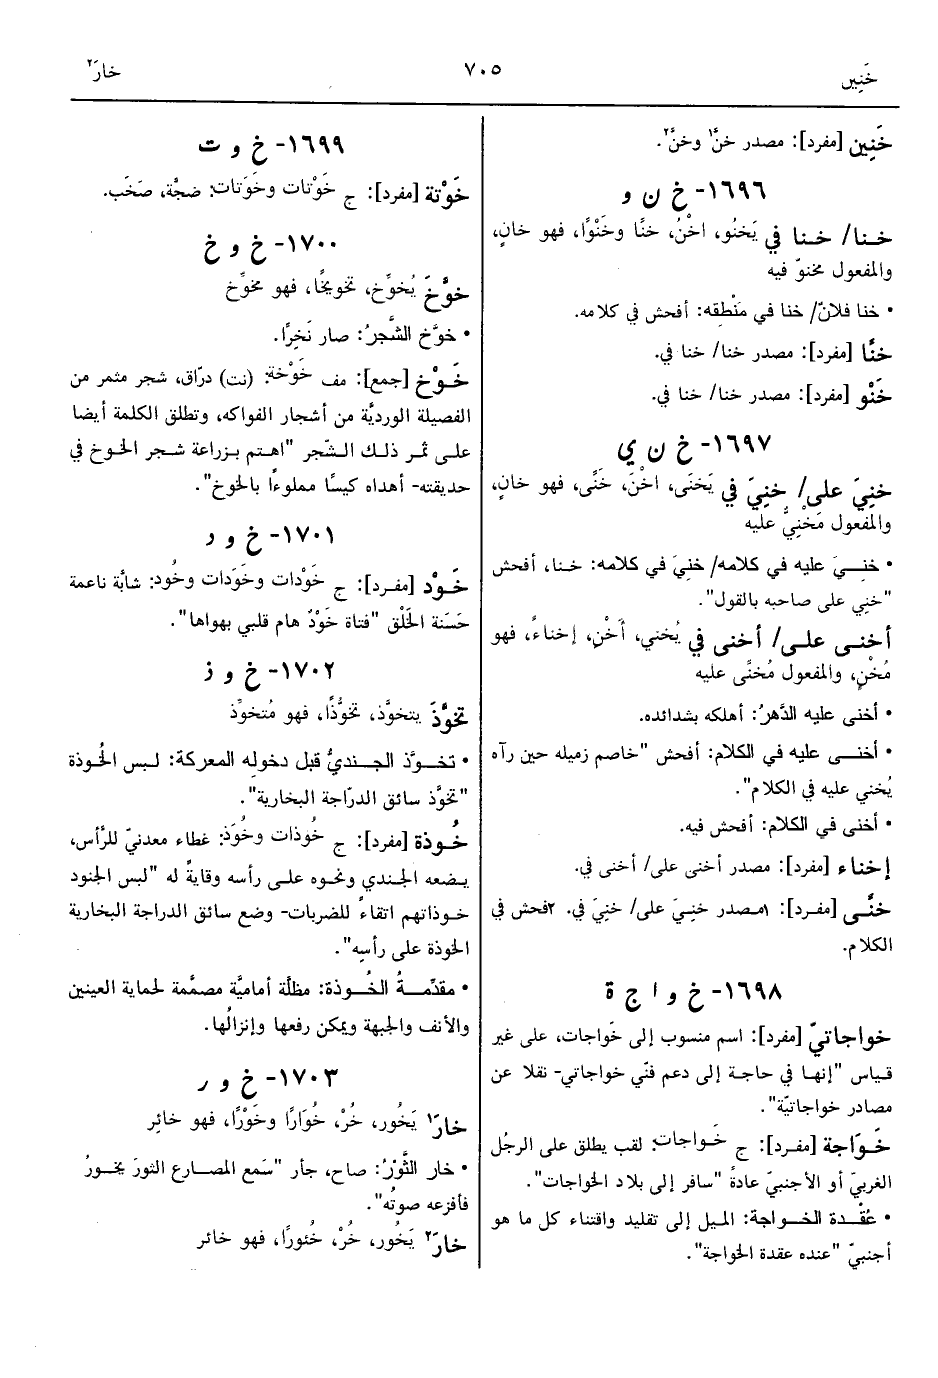 خَنِين
٧٠٥
خارَ٢
خَنِين [مفرد]: مصدر خنَّ١ وخنَّ٢.
١٦٩٦- خ ن و
خـنـا/ خـنـا في يَخنُو، اخْنُ، خنًا وخَنْوًا، فهو خانٍ،
والمفعول مخنوّ فيه
• خنا فلانٌ/ خنا في مَنْطِقه: أفحش في كلامه.
خنًا [مفرد]: مصدر خنا/ خنا في.
خَنْو [مفرد]: مصدر خنا/ خنا في.
١٦٩٧- خ ن ي
خنِيَ على/ خنِيَ في يَخنَى، اخْنَ، خَنًى، فهو خانٍ،
والمفعول مَخْنِيٌّ عليه
• خنِـيَ عليه في كلامه/ خنِيَ في كلامه: خـنـا، أفحش
"خنِي على صاحبه بالقول".
أخنـى علـى/ أخنى في يُخني، أَخْنِ، إخناءً، فهو
مُخْنٍ، والمفعول مُخنًى عليه
• أخنى عليه الدَّهرُ: أهلكه بشدائده.
• أخنـى عليه في الكلام: أفحش "خاصم زميله حين رآه
يُخني عليه في الكلام".
• أخنى في الكلام: أفحش فيه.
إخناء [مفرد]: مصدر أخنى على/ أخنى في.
خنًى [مفـرد]: ١مـصدر خنِـيَ على/ خنِيَ في. ٢فحش في
الكلام.
١٦٩٨- خ و ا ج ة
خواجاتيّ [مفرد]: اسم منسوب إلى خَواجات، على غير
قـياس "إنهـا في حاجـة إلى دعم فنّي خواجاتي- نقلا عن
مصادر خواجاتيّة".
خَوَاجة [مفـرد]: ج خَـواجات: لقب يطلق على الرجُل
الغربيّ أو الأجنبيّ عادةً "سافر إلى بلاد الخواجات".
• عُقْـدة الخـواجة: المـيل إلى تقليد واقتناء كل ما هو
أجنبيّ "عنده عقدة الخواجة".
١٦٩٩- خ و ت
خَوْتة [مفرد]: ج خَوْتات وخَوَتات: ضجّة، صَخَب.
١٧٠٠- خ و خ
خوَّخَ يُخوِّخ، تخويخًا، فهو مخوِّخ
• خوَّخ الشَّجرُ: صار نَخِرًا.
خَـوْخ [جمع]: مف خَوْخة: (نت) درّاق، شجر مثمر من
الفصيلة الورديَّة من أشجار الفواكه، وتطلق الكلمة أيضا
علـى ثمر ذلـك الـشّجر "اهـتم بـزراعة شـجر الخـوخ في
حديقته- أهداه كيسًا مملوءًا بالخوخ".
١٧٠١- خ و د
خَـوْد [مفـرد]: ج خَوْدات وخَوَدات وخُود: شابَّة ناعمة
حَسَنة الخَلْق "فتاة خَوْدٌ هام قلبي بهواها".
١٧٠٢- خ و ذ
تخوَّذَ يتخوَّذ، تخوُّذًا، فهو مُتخوِّذ
• تخـوَّذ الجـنديُّ قبل دخولِه المعركة: لـبس الخُوذة
"تخوَّذ سائق الدرّاجة البخارية".
خُـوذة [مفرد]: ج خُوذات وخُوَذ: غطاء معدنيّ للرَّأس،
يـضعه الجـندي ونحـوه علـى رأسه وقايةً له "لبس الجنود
خـوذاتهم اتقاءً للضربات- وضع سائق الدراجة البخارية
الخوذة على رأسِه".
• مقدِّمـةُ الخُـوذة: مظلَّة أماميَّة مصمَّمة لحماية العينين
والأنف والجبهة ويمكن رفعها وإنزالُها.
١٧٠٣- خ و ر
خارَ١ يَخُور، خُرْ، خُوَارًا وخَوْرًا، فهو خائِر
• خار الثَّوْرُ: صاح، جأر "سَمع المصارع الثورَ يخورُ
فأفزعه صوتُه".
خارَ٢ يَخُور، خُرْ، خُئورًا، فهو خائر